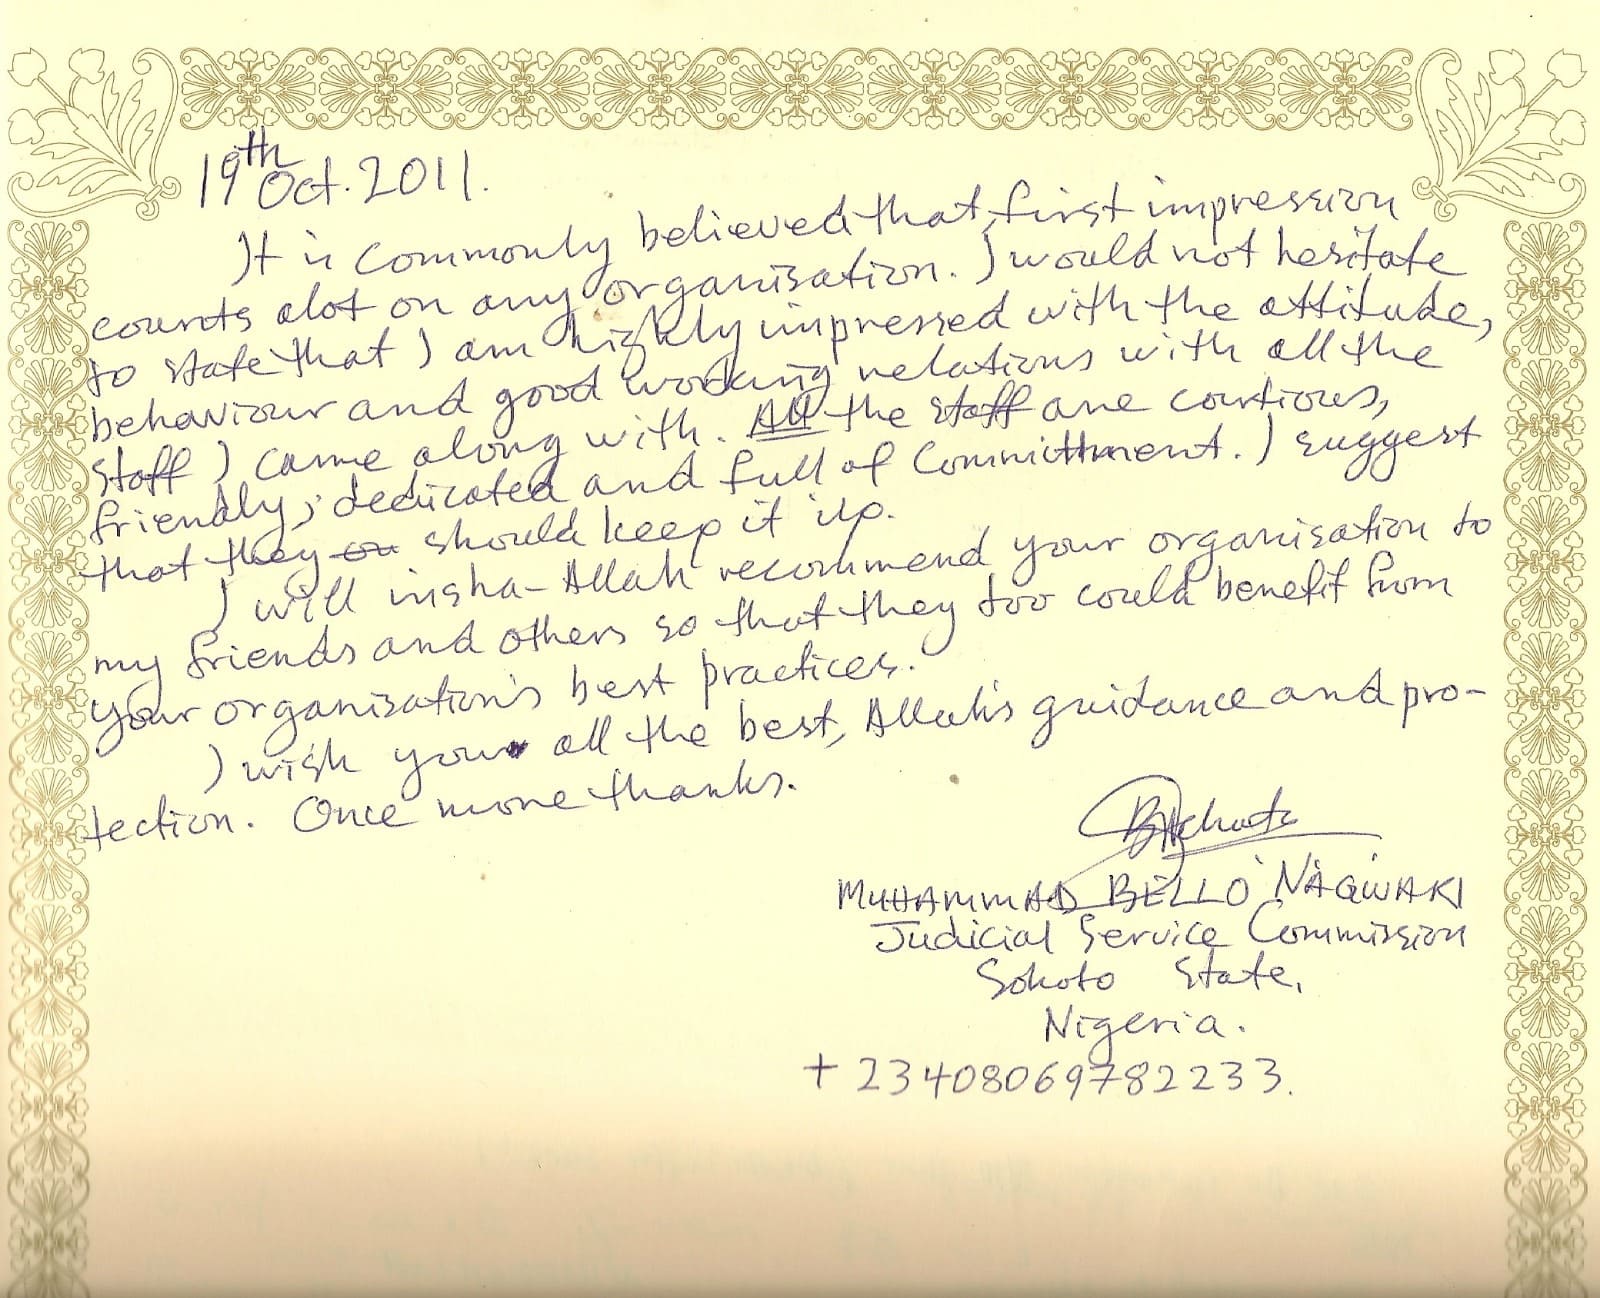 19th Oct. 2011.
It is commonly believed that first impression
counts alot on any organisation. I would not hesitate
to state that I am highly impressed with the attitude,
behaviour and good working relations with all the
staff I came along with. All the staff are courtious,
friendly, dedicated and full of committment. I suggest
that they should keep it up.
I will insha-Allah recommend your organisation to
my friends and others so that they too could benefit from
your organisation's best practices.
I wish you all the best, Allah's guidance and pro-
tection. Once more thanks.
MUHAMMAD BELLO NAGWAKI
Judicial Service Commission
Sokoto State,
Nigeria.
+23408069782233.